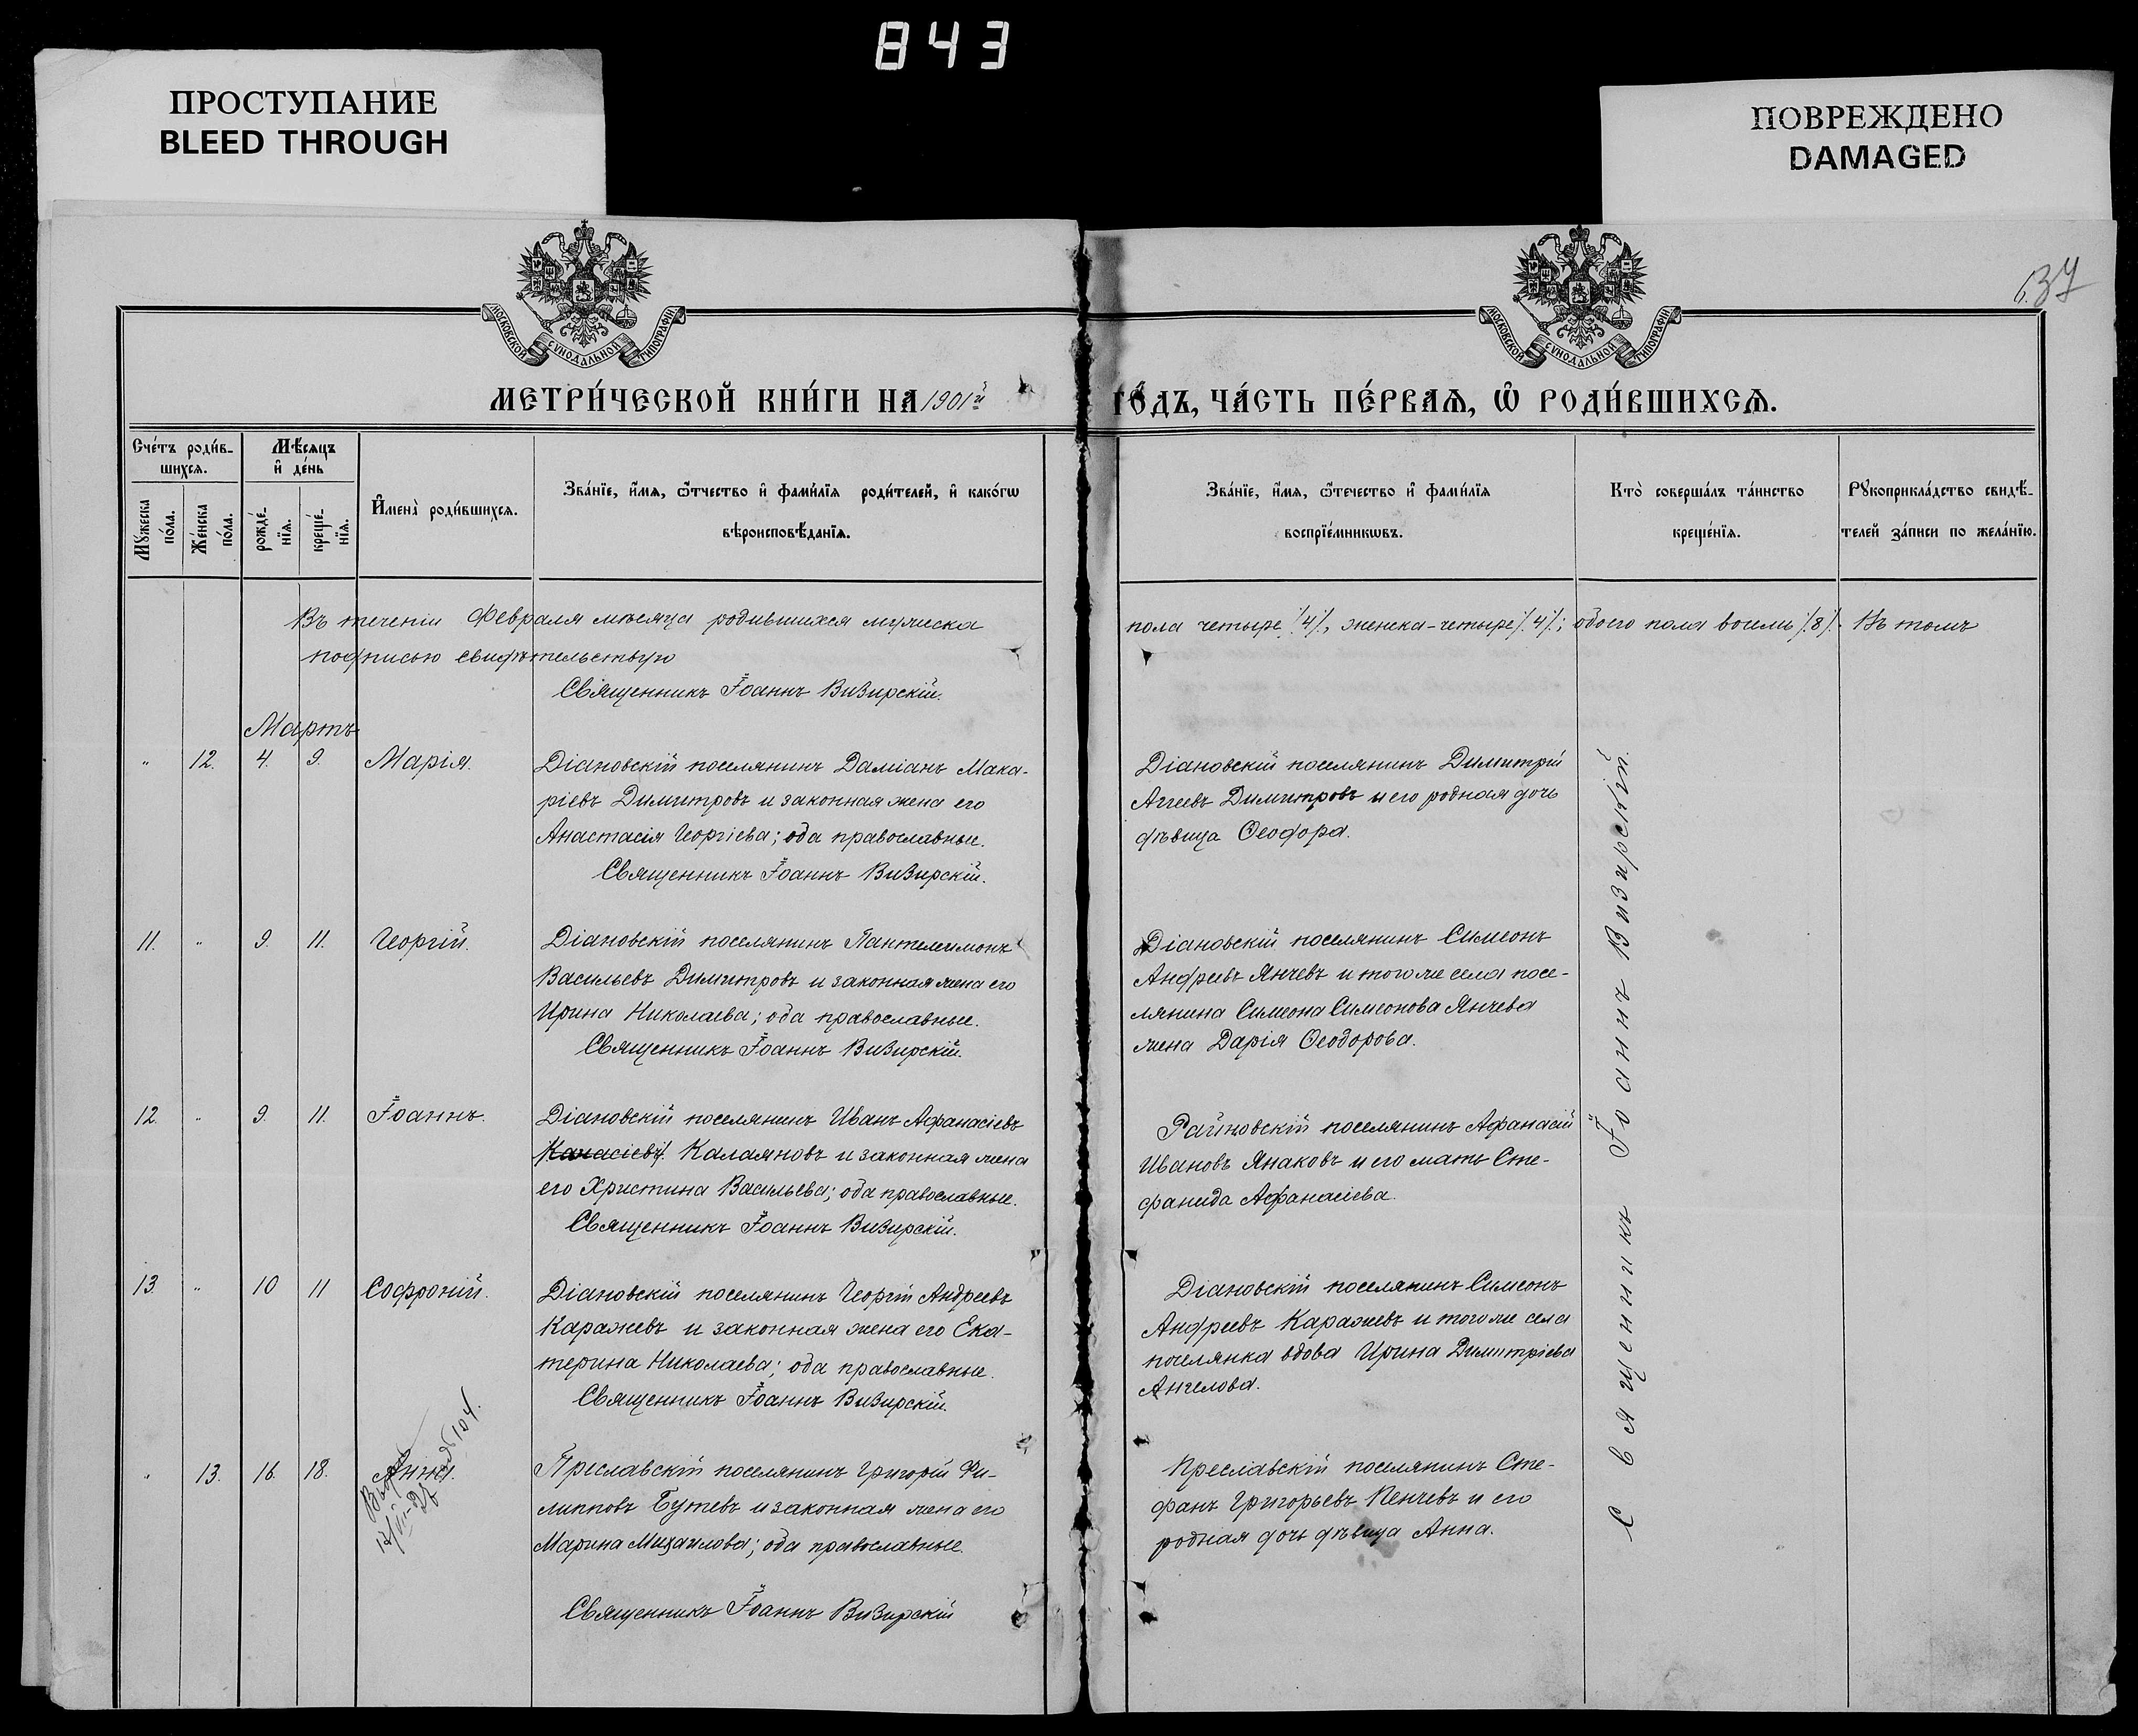 843
ПРОСТУПАНИЕ
BLEED THROUGH
ПОВРЕЖДЕНО
DAMAGED
37
МОСКОВСКОЙ СѴНОДАЛЬНОЙ ТИПОГРАФІИ
МОСКОВСКОЙ СѴНОДАЛЬНОЙ ТИПОГРАФІИ
МЕТРИ́ЧЕСКОЙ КНИ́ГИ НА 1901й ГО́ДЪ, ЧА́СТЬ ПЕ́РВАѦ, Ѡ РОДИ́ВШИХСѦ.
Сче́тъ роди́в-
шихсѧ.
Мꙋ́жеска
по́ла.
Же́нска
по́ла.
Мѣ́сѧцъ
и҆ де́нь
рожде́-
нїѧ.
креще́-
нїѧ.
И҆мена̀ роди́вшихсѧ.
Зва́нїе, и҆́мѧ, ѻ҆́тчество и҆ фами́лїѧ роди́телей, и҆ како́гѡ
вѣроисповѣ́данїѧ.
Зва́нїе, и҆́мѧ, ѻ҆́течество и҆ фами́лїѧ
воспрїе́мникѡвъ.
Кто̀ соверша́лъ та́инство
креще́нїѧ.
Рꙋкоприкла́дство свидѣ́-
телей за́писи по жела́нїю.
Въ теченіи Февраля мѣсяца родившихся мужеска пола четыре /4/, женска-четыре /4/; обоего пола восемь /8/. Въ томъ
подписью свидѣтельствую
Священникъ Іоаннъ Визирскій.
Мартъ
" 12. 4. 9. Марія.
Діановскій поселянинъ Даміанъ Мака-
ріевъ Димитровъ и законная жена его
Анастасія Георгіева; оба православные.
Священникъ Іоаннъ Визирскій.
Діановскій поселянинъ Димитрій
Аггеевъ Димитровъ и его родная дочь
дѣвица Ѳеодора.
11. " 9. 11. Георгій.
Діановскій поселянинъ Пантелеимонъ
Васильевъ Димитровъ и законная жена его
Ирина Николаева; оба православные.
Священникъ Іоаннъ Визирскій.
Діановскій поселянинъ Симеонъ
Андреевъ Янчевъ и того же села посе-
лянина Симеона Симеонова Янчева
жена Дарія Ѳеодорова.
12. " 9. 11. Іоаннъ.
Діановскій поселянинъ Иванъ Афанасіевъ
Калаяновъ и законная жена
его Христина Васильева; оба православные.
Священникъ Іоаннъ Визирскій.
Райновскій поселянинъ Афанасій
Ивановъ Янаковъ и его мать Сте-
фанида Афанасіева.
13. " 10 11 Софроній.
Діановскій поселянинъ Георгій Андреевъ
Каражевъ и законная жена его Ека-
терина Николаева; оба православные.
Священникъ Іоаннъ Визирскій.
Діановскій поселянинъ Симеонъ
Андреевъ Каражевъ и того же села
поселянка вдова Ирина Димитріева
Ангелова.
" 13. 16. 18. Анна.
Преславскій поселянинъ Григорій Фи-
липповъ Бутевъ и законная жена его
Марина Михаилова; оба православные.
Священникъ Іоаннъ Визирскій
Преславскій поселянинъ Сте-
фанъ Григорьевъ Пенчевъ и его
родная дочь дѣвица Анна.
Священникъ Іоаннъ Визирскій.